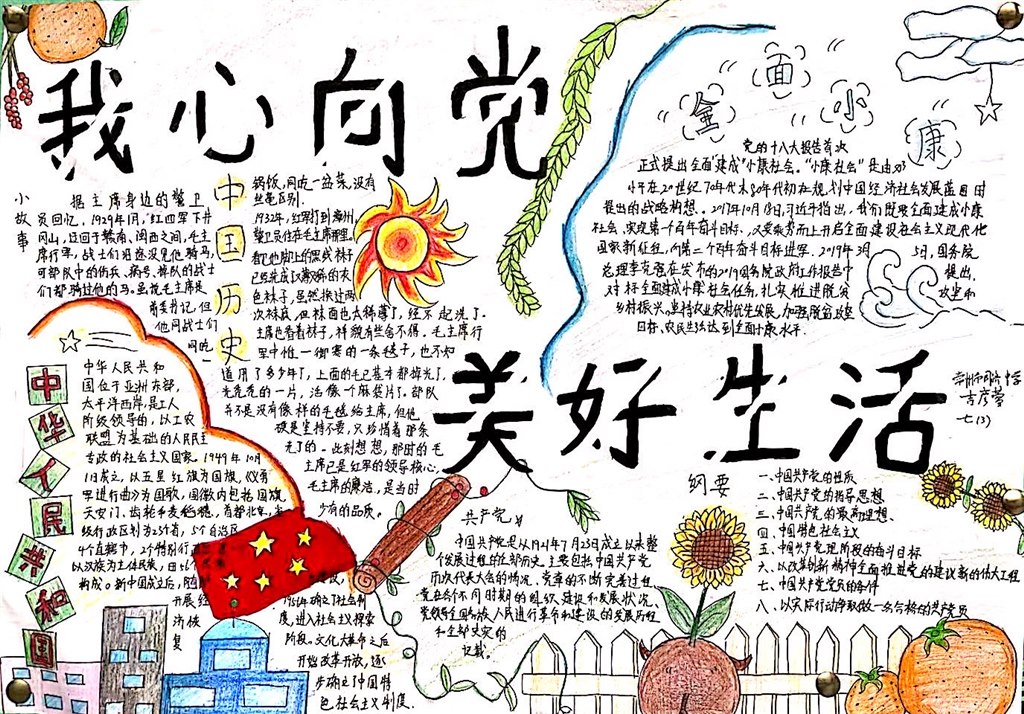 我心向党
小故事
据主席身边的警卫
员回忆，1929年1月，红四军下井
冈山，迂回于赣南、闽西之间，毛主
席行军，战士们沿途没见他骑马，
可部队中的伤兵、病号、掉队的战士
们都骑过他的马。虽说毛主席是
前委书记，但
他同战士们
同吃
中国历史
锅饭，同吃一盆菜，没有
丝毫区别。
1932年，红军打到漳州，
警卫员住在毛主席那里，
看他脚上的黑线袜子
已经洗成了
色袜子，虽然换过两
次袜底，但袜面也太稀薄了，经不起洗了。
主席也看看袜子，样貌有些舍不得。毛主席行
军中惟一御寒的一条毯子，也不知
道用了多少年了，上面的毛已基本都掉光了，
光秃秃的一片，活像个麻袋片了。部队
并不是没有像样的毛毯给主席，但他
硬是坚持不要，只珍惜着那条
旧的。此刻想想，那时的毛
主席已是红军的领导核心，
毛主席的廉洁，是当时
少有的品质。
全面小康
党的十八大报告首次
正式提出全面“建成”小康社会。“小康社会”是由邓
小平在20世纪70年代末80年代初在规划中国经济社会发展蓝图时
提出的战略构想。2017年10月18日，习近平指出，我们既要全面建成小康
社会、实现第一个百年奋斗目标，又要乘势而上开启全面建设社会主义现代化
国家新征程，向第二个百年奋斗目标进军。2019年3月5日，国务院
总理李克强在发布的2019国务院政府工作报告中提出，
对标全面建成小康社会任务，扎实推进脱贫攻坚和
乡村振兴。坚持农业农村优先发展，加强脱贫攻坚
目标，农民生活达到全面小康水平.
美好生活
七(3)
中华人民共和国
中华人民共和
国位于亚洲东部，
太平洋西岸，是工人
阶级领导的，以工农
联盟为基础的人民民主
专政的社会主义国家。1949年10月
1日成立，以五星红旗为国旗，《义勇
军进行曲》为国歌，国徽内包括国旗、
天安门、齿轮和麦稻穗，首都北京，省
级行政区划为23个省，5个自治区
4个直辖市，2个特别行
以汉族为主体民族，由
构成。新中国成立后，随
开展经
济恢
复
建设，
1954年确立了社会制
度，进入社会主义探索
阶段，文化大革命之后
开始改革开放，逐
步确立了中国特
色社会主义制度.
共产党史
中国共产党史是从1921年7月23日成立以来整
个发展过程的全部历史。主要包括中国共产党
历次代表大会的情况、党章的不断完善过程、
党在各个不同时期的组织、建设和发展状况、
党领导全国各族人民进行革命和建设的发展历程
和全部史实的
记载。
纲要
一、中国共产党的性质
二、中国共产党的指导思想
三、中国共产党的最高理想、
四、中国特色社会主义
五、中国共产党现阶段的奋斗目标
六、以改革创新精神全面推进党的建设新的伟大工程
七、中国共产党党员的条件
八、以实际行动争取做一名合格的共产党员